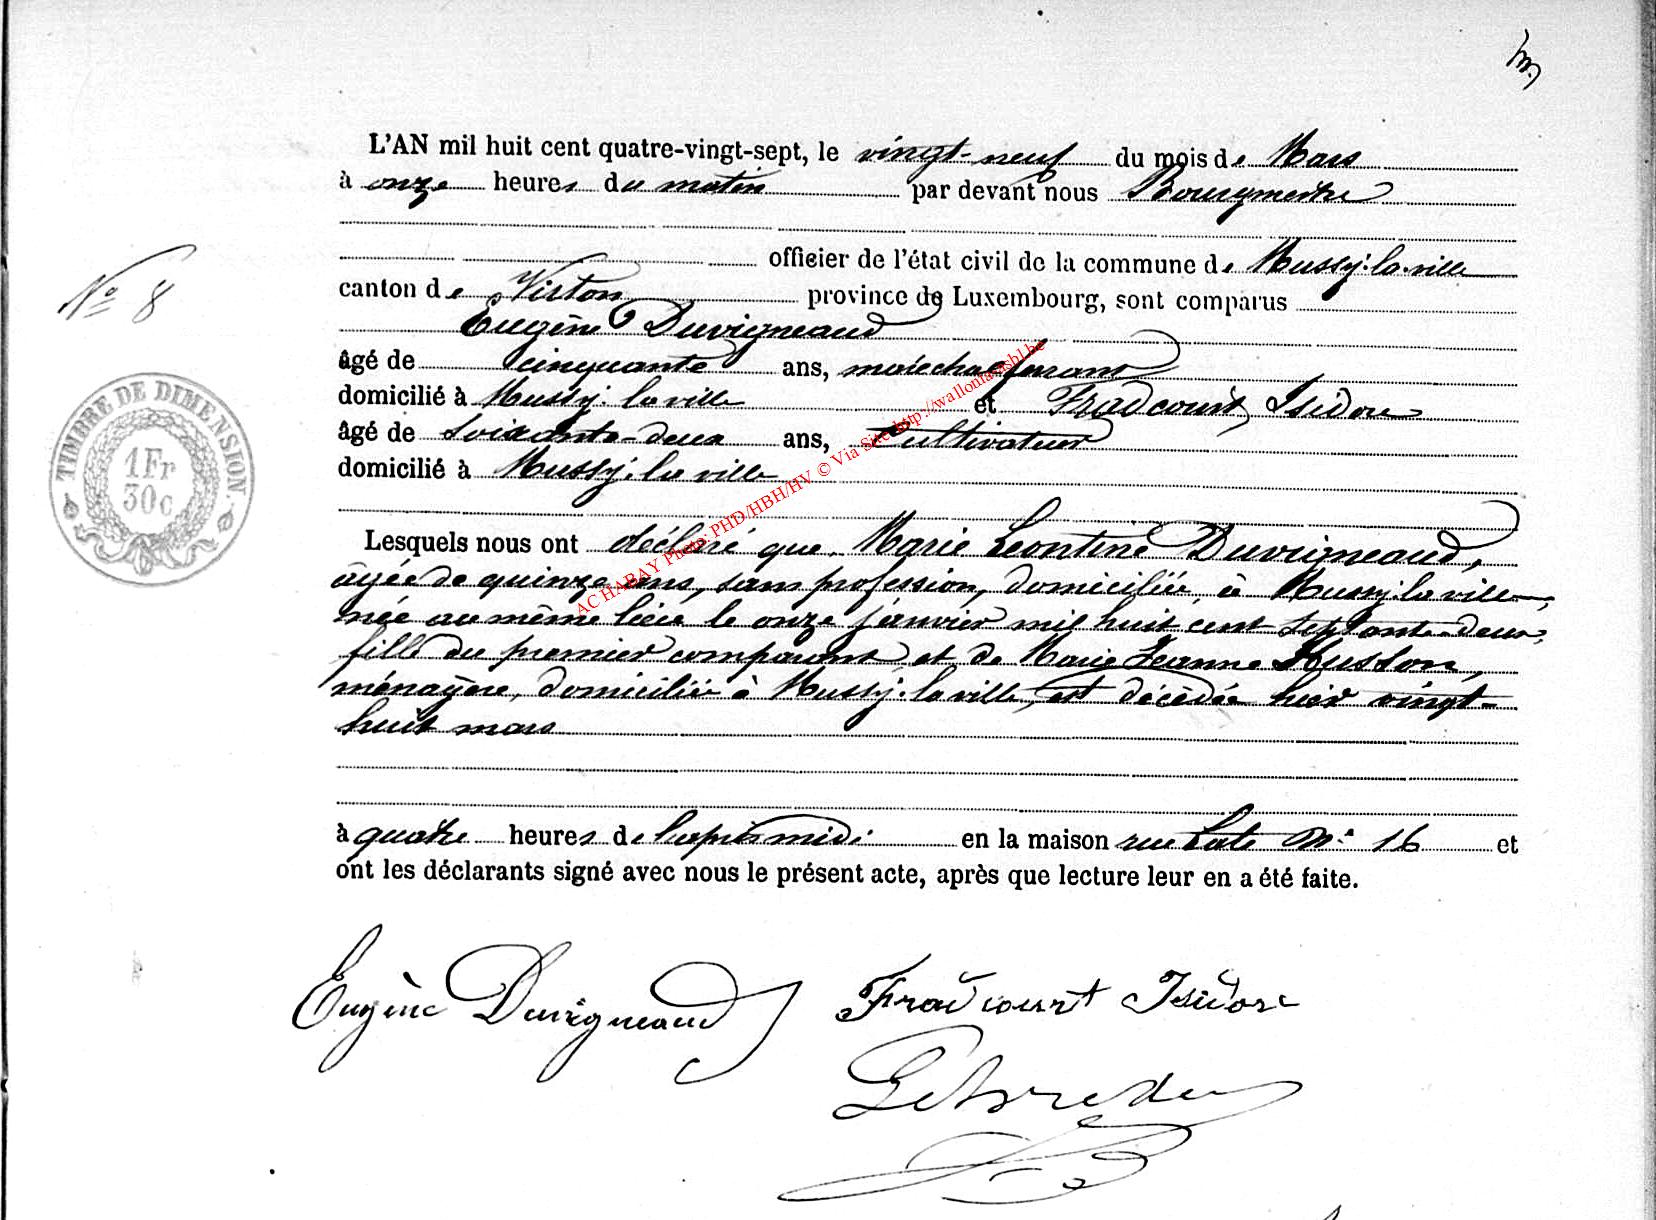 L'AN mil huit cent quatre-vingt-sept, le vingt-neuf du mois de Mars
à onze heures du matin par devant nous Bourgmestre
officier de l'état civil de la commune de Mussy-la-ville
canton de Virton province de Luxembourg, sont comparus
Eugène Duvigneaud
N° 8
âgé de cinquante ans, maréchal ferrant
domicilié à Mussy-la-ville et Fradcourt Isidore
âgé de soixante-deux ans, cultivateur
domicilié à Mussy-la-ville
TIMBRE DE DIMENSION.
1 Fr
30c
AC HABAY Photo: PHD/HBH/HV © Via Site http://wallonia.asbl.be
Lesquels nous ont déclaré que Marie Leontine Duvigneaud,
âgée de quinze ans, sans profession, domiciliée à Mussy-la-ville,
née au même lieu le onze janvier mil huit cent septante-deux,
fille du premier comparant et de Marie Jeanne Husson,
ménagère, domiciliée à Mussy-la-ville, est décédée hier vingt-
huit mars
à quatre heures de l'après midi en la maison rue N° 16 et
ont les déclarants signé avec nous le présent acte, après que lecture leur en a été faite.
Eugène Duvigneaud Fradcourt Isidore